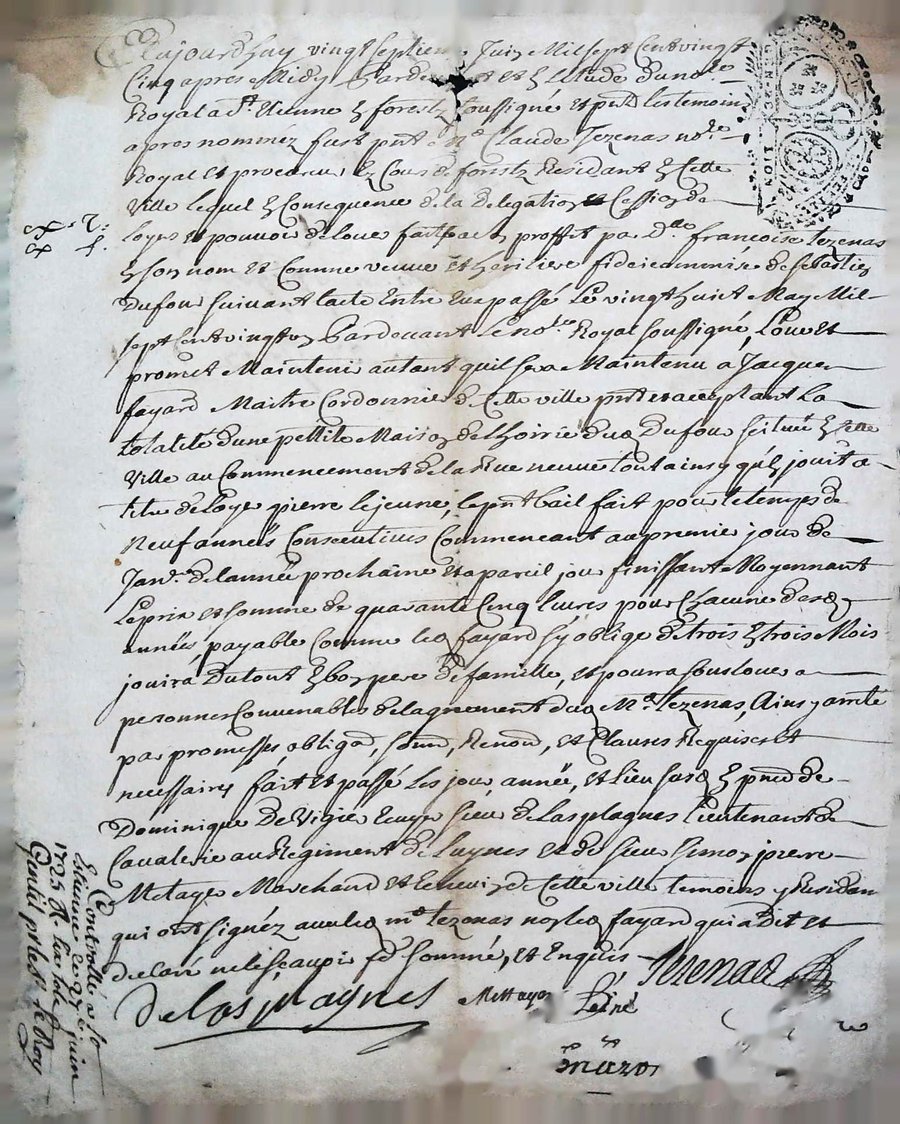 Aujourdhuy vingt septiem Juin Mil sept Cent vingt
Cinq apres Midy Pardevant et en letude du no.re
Royal a S.t Etienne en forestz soussigné et pnts les temoins
apres nommez fust pnt M.e Claude Tezenas no.re
Royal et procureur es Cours de forestz Residant en Cette
Ville lequel en Consequence de la delegation et Cession de
loyers et pouvoir de louer fait a son proffit par d.lle francoise tezenas
en son nom et Comme veuve et heritiere fideicommise de sebastien
Dufour suivant lacte Entre Eux passé Le vingt huit May Mil
sept Cent vingt Pardevant Le no.re Royal soussigné, Loue et
promet Maintenir autant quil sera Maintenu a Jacques
fayard Maitre Cordonnier de Cette ville pnt et acceptant La
totalité dune pettite Maison de lhoirie dud Dufour scituée en Cette
Ville au Commencement de la Rue neuve tout ainsy quen jouit a
titre de Loyer pierre Lejeune, le pnt bail fait pour le temps de
Neuf années Consecutives Commencant au premier jour de
Janv.r de lannée prochaine et a pareil jour finissant Moyennant
Le prix et somme de quarante Cinq livres pour Chacune desd
années, payable Comme led fayard sy oblige de trois en trois Mois
jouira Du tout en bon pere de famille, et pourra souslouer a
personnes Convenables de lagrement dud M.e Tezenas, Ainsy arreté
par promesses, obligaõ, soum, Renon, et Clauses Requises et
necessaires fait et passé Les jour, année, et lieu susd en pnce de
Dominique De Vigier Ecuyer sieur de Lasplagnes Lieutenant de
Cavalerie au Regiment de Luynes et de sieur simon pierre
Metayer Marchand et Echevin de Cette ville temoins y Residans
qui ont signéz avec led m.e tezenas non led fayard qui a Dit et
declaré ne le scavoir fe sommé, et Enquis
Tezenas
de Lasplagnes Mettayer
Controllé a S.t
Estienne le 27e juin
1725 R